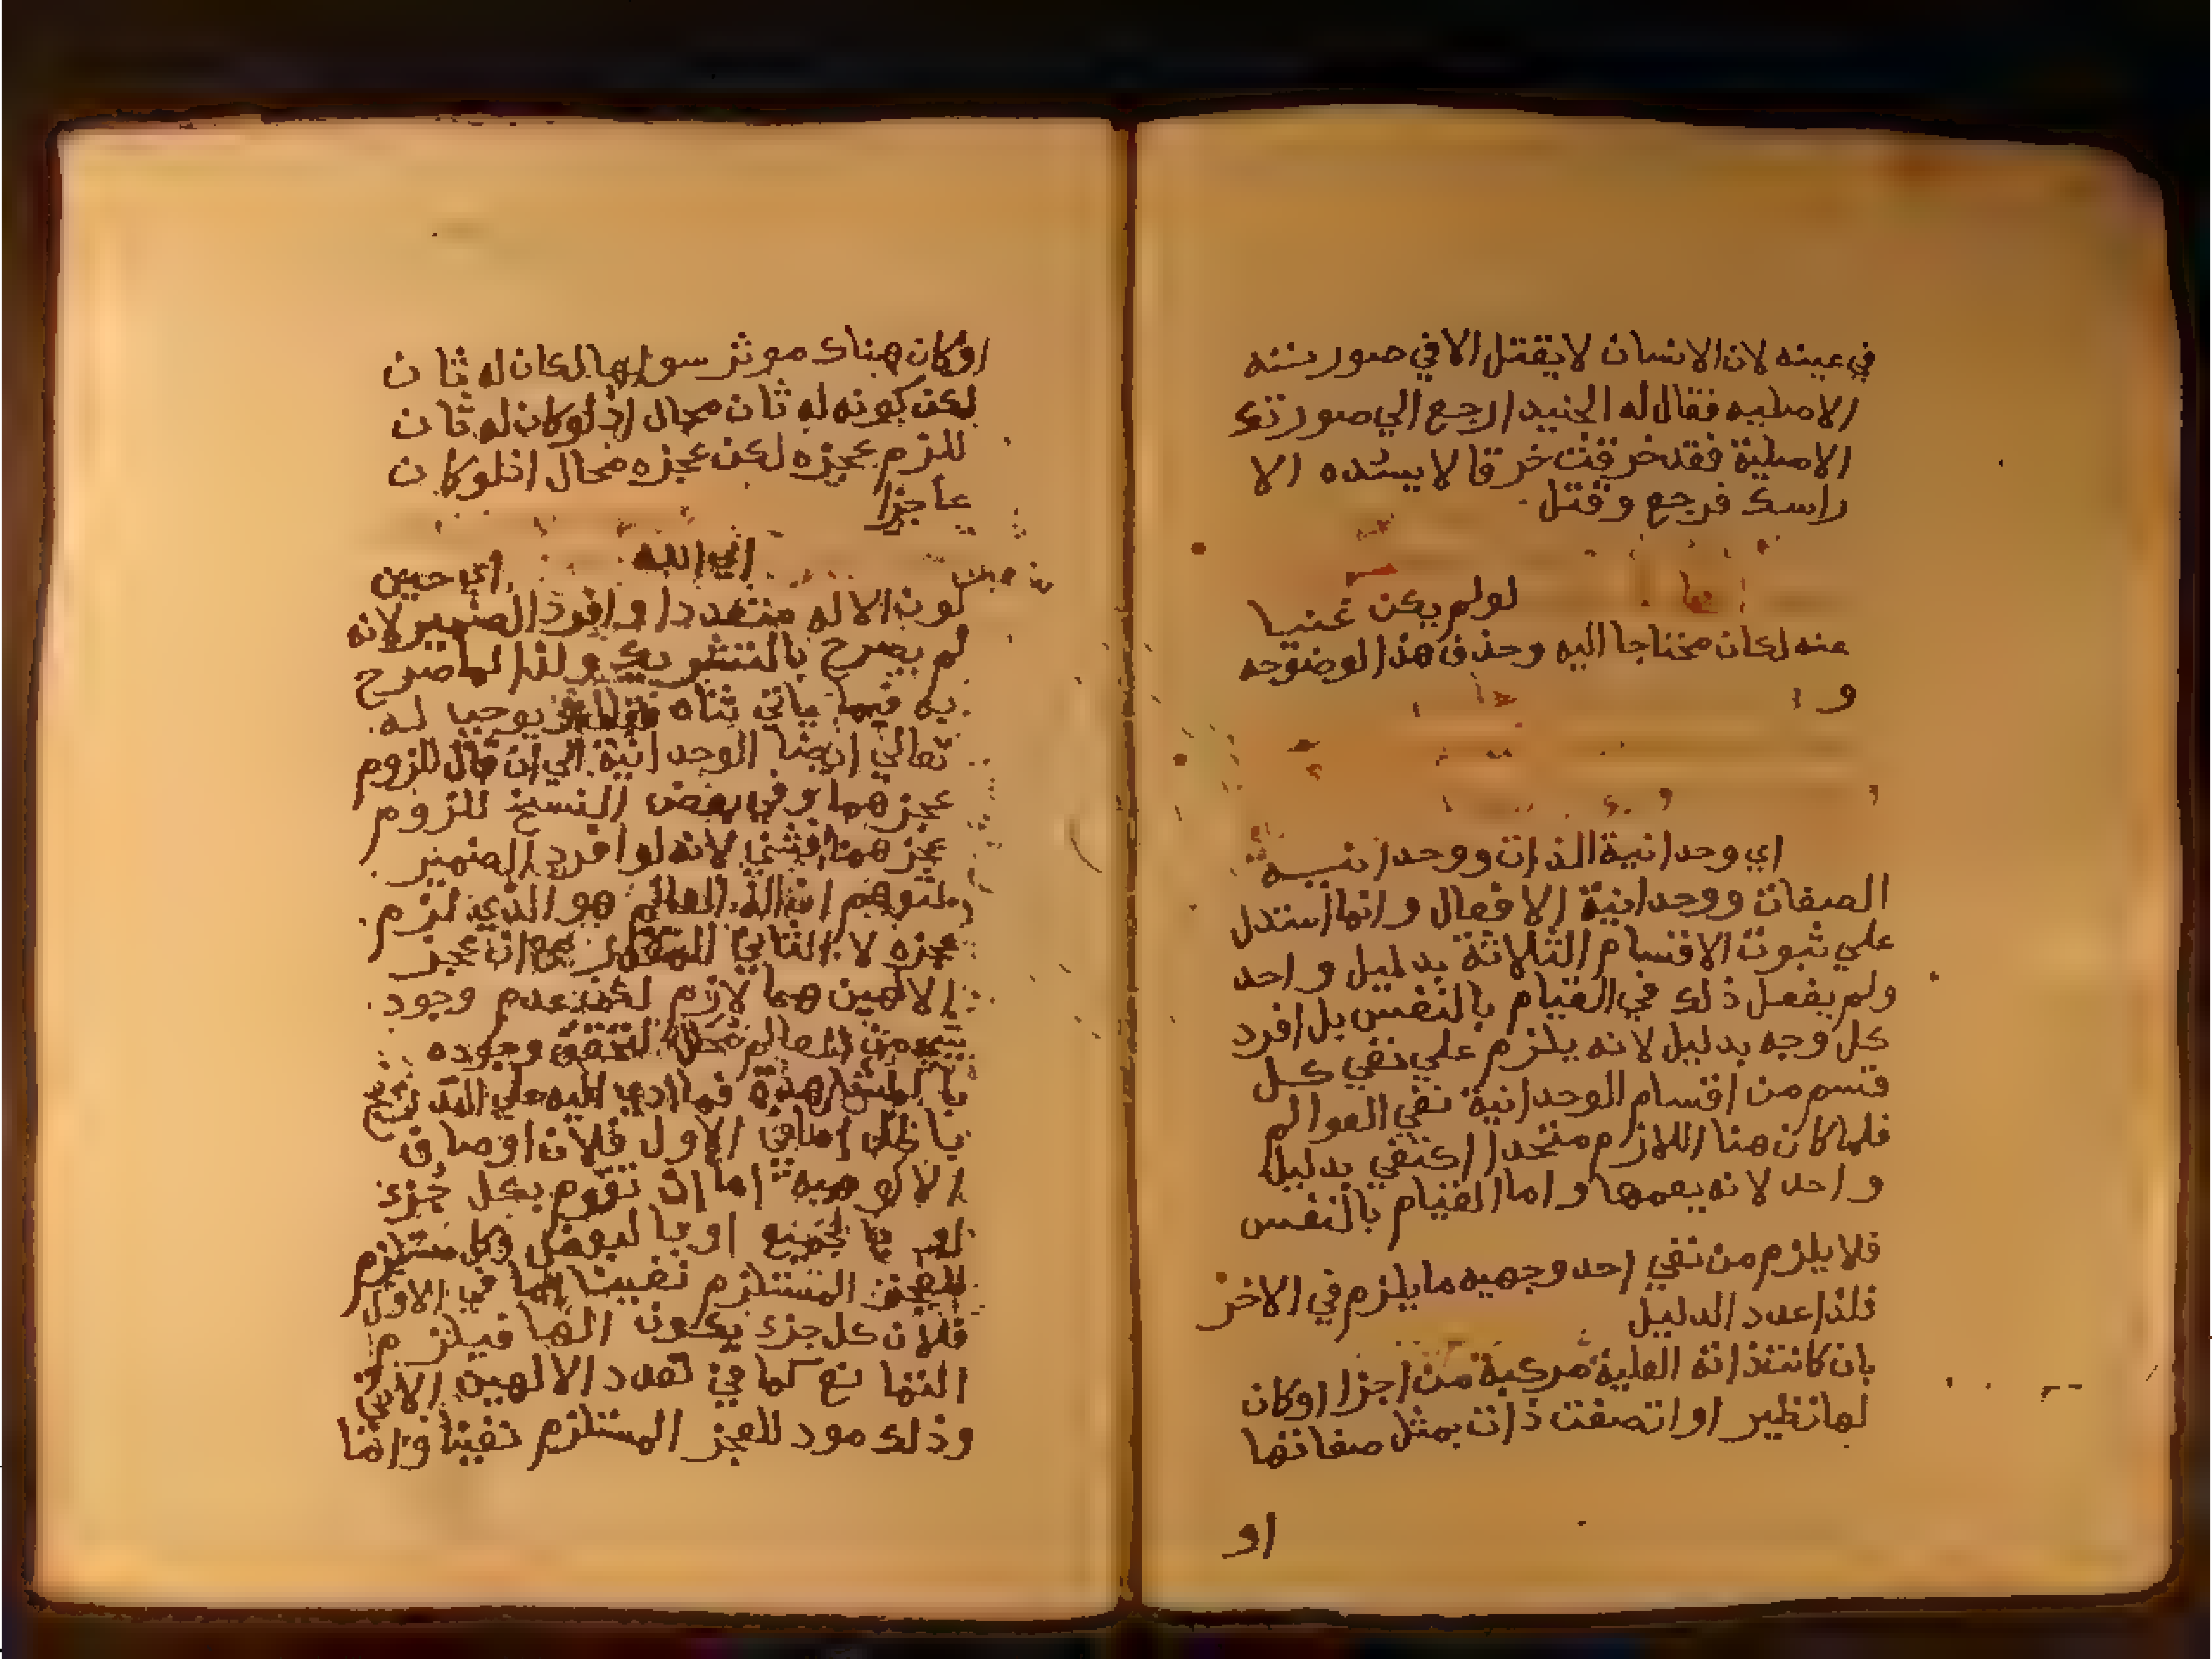 في عينه لان الانسان لا يقتل الا في صورته
الاصليه فقال له الجنيد ارجع الي صورتك
الاصلية فقد خرقت خرقا لا يسده الا
راسك فرجع وقتل
لو لم يكن غنيا
عنه لكان محتاجا اليه وحذف هذا لوضوحه
و
اي وحدانية الذات ووحدانيـة
الصفات ووحدانية الافعال وانما استدل
علي ثبوت الاقسام الثلاثة بدليل واحد
ولم يفعل ذلك في القيام بالنفس بل افرد
كل وجه بدليل لانه يلزم علي نفي كل
قسم من اقسام الوحدانية نفي العوالم
فلما كان هنا اللازم متحدا اكتفي بدليل
واحد لانه يعمها واما القيام بالنفس
فلا يلزم من نفي احد وجهيه ما يلزم في الاخر
فلذا عدد الدليل
بان كانت ذاته العلية مركبة من اجزا او كان
لها نظير او اتصفت ذات بمثل صفاتها
او
او كان هناك موثر سواها لكان له ثان
لكن كونه له ثان محال اذ لو كان له ثان
للزم عجزه لكن عجزه محال اذ لو كان
عاجزا
اي الله اي حين
كون الاله متعددا وافرد الضمير لانه
لم يصرح بالتشريك ولذا لما صرح
به فيما ياتي ثناه يوجبا له
تعالي ايضا الوحدانية الي ان قال للزوم
عجزهما وفي بعض النسخ للزوم
عجزهما فثني لانه لو افرد الضمير
لتوهم ان اله العالم هو الذي لزم
عجزه لا الثاني المقدر مع ان عجز
الالهين هما لازم لكن عدم وجود
شي من العالم محال لتحقق وجوده
بالمشاهدة فما ادي اليه علي
باطل اما في الاول فلان اوصاف
الالوهية اما ان تقوم بكل جزء
او بالجميع او بالبعض وكل مستلزم
للعجز المستلزم نفينا اما في الاول
فلان كل جزء يكون الها فيلزم
التمانع كما في تعدد الالهين الاتي
وذلك مود للعجز المستلزم نفينا واما